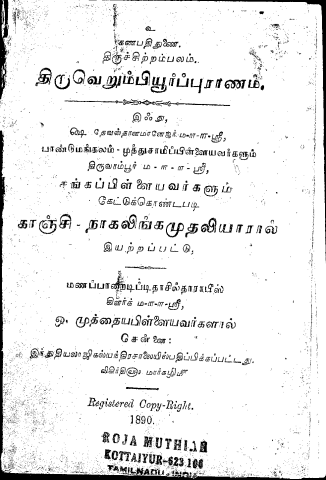 உ
கணபதி துணை.
திருச்சிற்றம்பலம்.
திருவெறும்பியூர்ப்புராணம்.
இஃது,
ஷ தேவஸ்தானமானேஜர் ம-ள-ள-ஸ்ரீ,
பாண்டுமங்கலம் - முத்துசாமிப்பிள்ளையவர்களும்
திருவரம்பூர் ம - ள - ள - ஸ்ரீ,
சங்கப்பிள்ளையவர்களும்
கேட்டுக்கொண்டபடி
காஞ்சி - நாகலிங்கமுதலியாரால்
இயற்றப்பட்டு,
மணப்பாறைடிப்டிதாசில்தாராபீஸ்
கிளார்க் ம-ள-ள-ஸ்ரீ,
ஒ. முத்தையபிள்ளையவர்களால்
சென்னை:
இந்துதியலாஜிகல்யந்திரசாலையிற்பதிப்பிக்கப்பட்டது.
மார்கழி
Registered Copy-Right.
1890.
ROJA MUTHIAH
KOTTAIYUR-623 106
TAMILNADU - INDIA